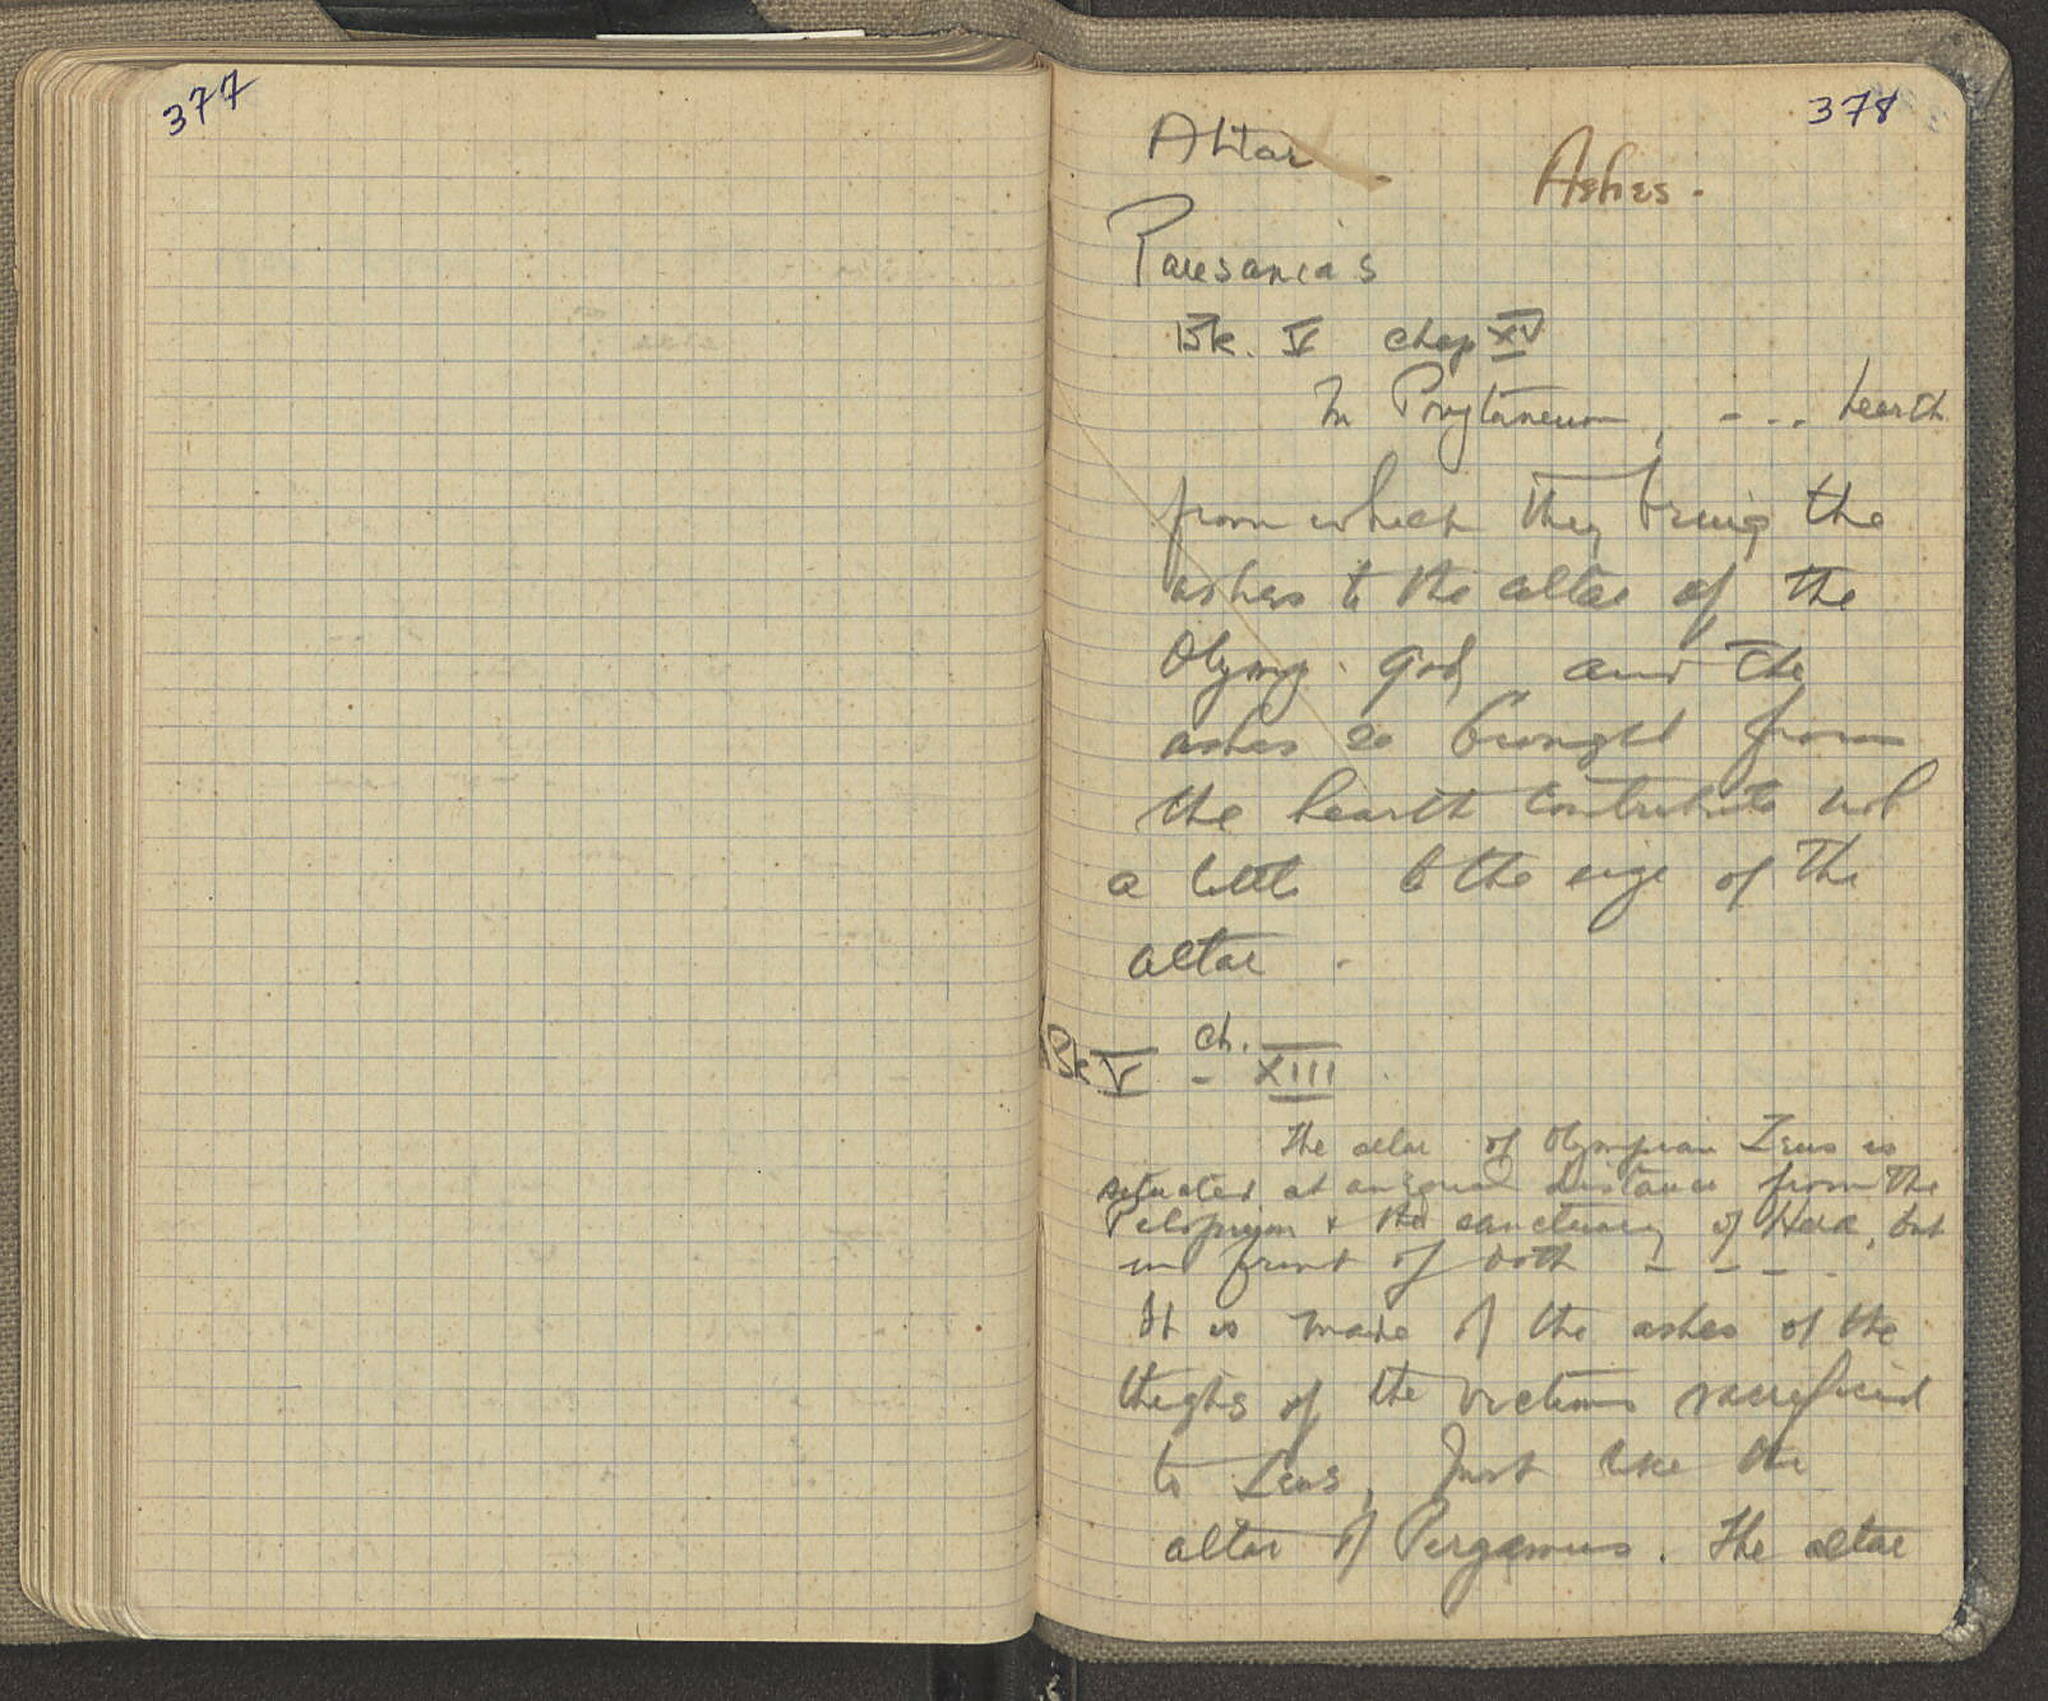 377
378
Altar.
Ashes.
Pausanias
Bk. V chap XV
In Prytaneum, - - .. hearth
from which they bring the
ashes to the altar of the
Olymp. god, and the
ashes so brought from
the hearth contribute not
a little to the size of the
altar.
Bk V - ch. XIII
The altar of Olympian Zeus is
situated at an equal distance from the
Pelopium & the sanctuary of Hera, but
in front of both - - - .
It is made of the ashes of the
thighs of the victims sacrificed
to Zeus, Just like the
altar of Pergamus. The altar